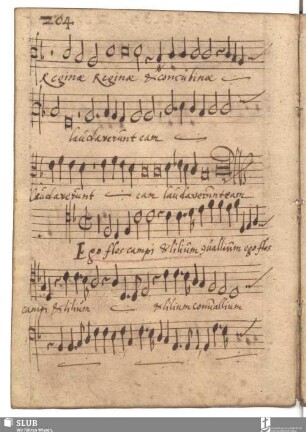 204
Reginæ Reginæ & concubinæ
laudaverunt eam
laudaverunt eam laudaverunt eam
Ego flos campi & lilium vallium ego flos
campi & lilium & lilium convallium
SLUB
Wir führen Wissen.